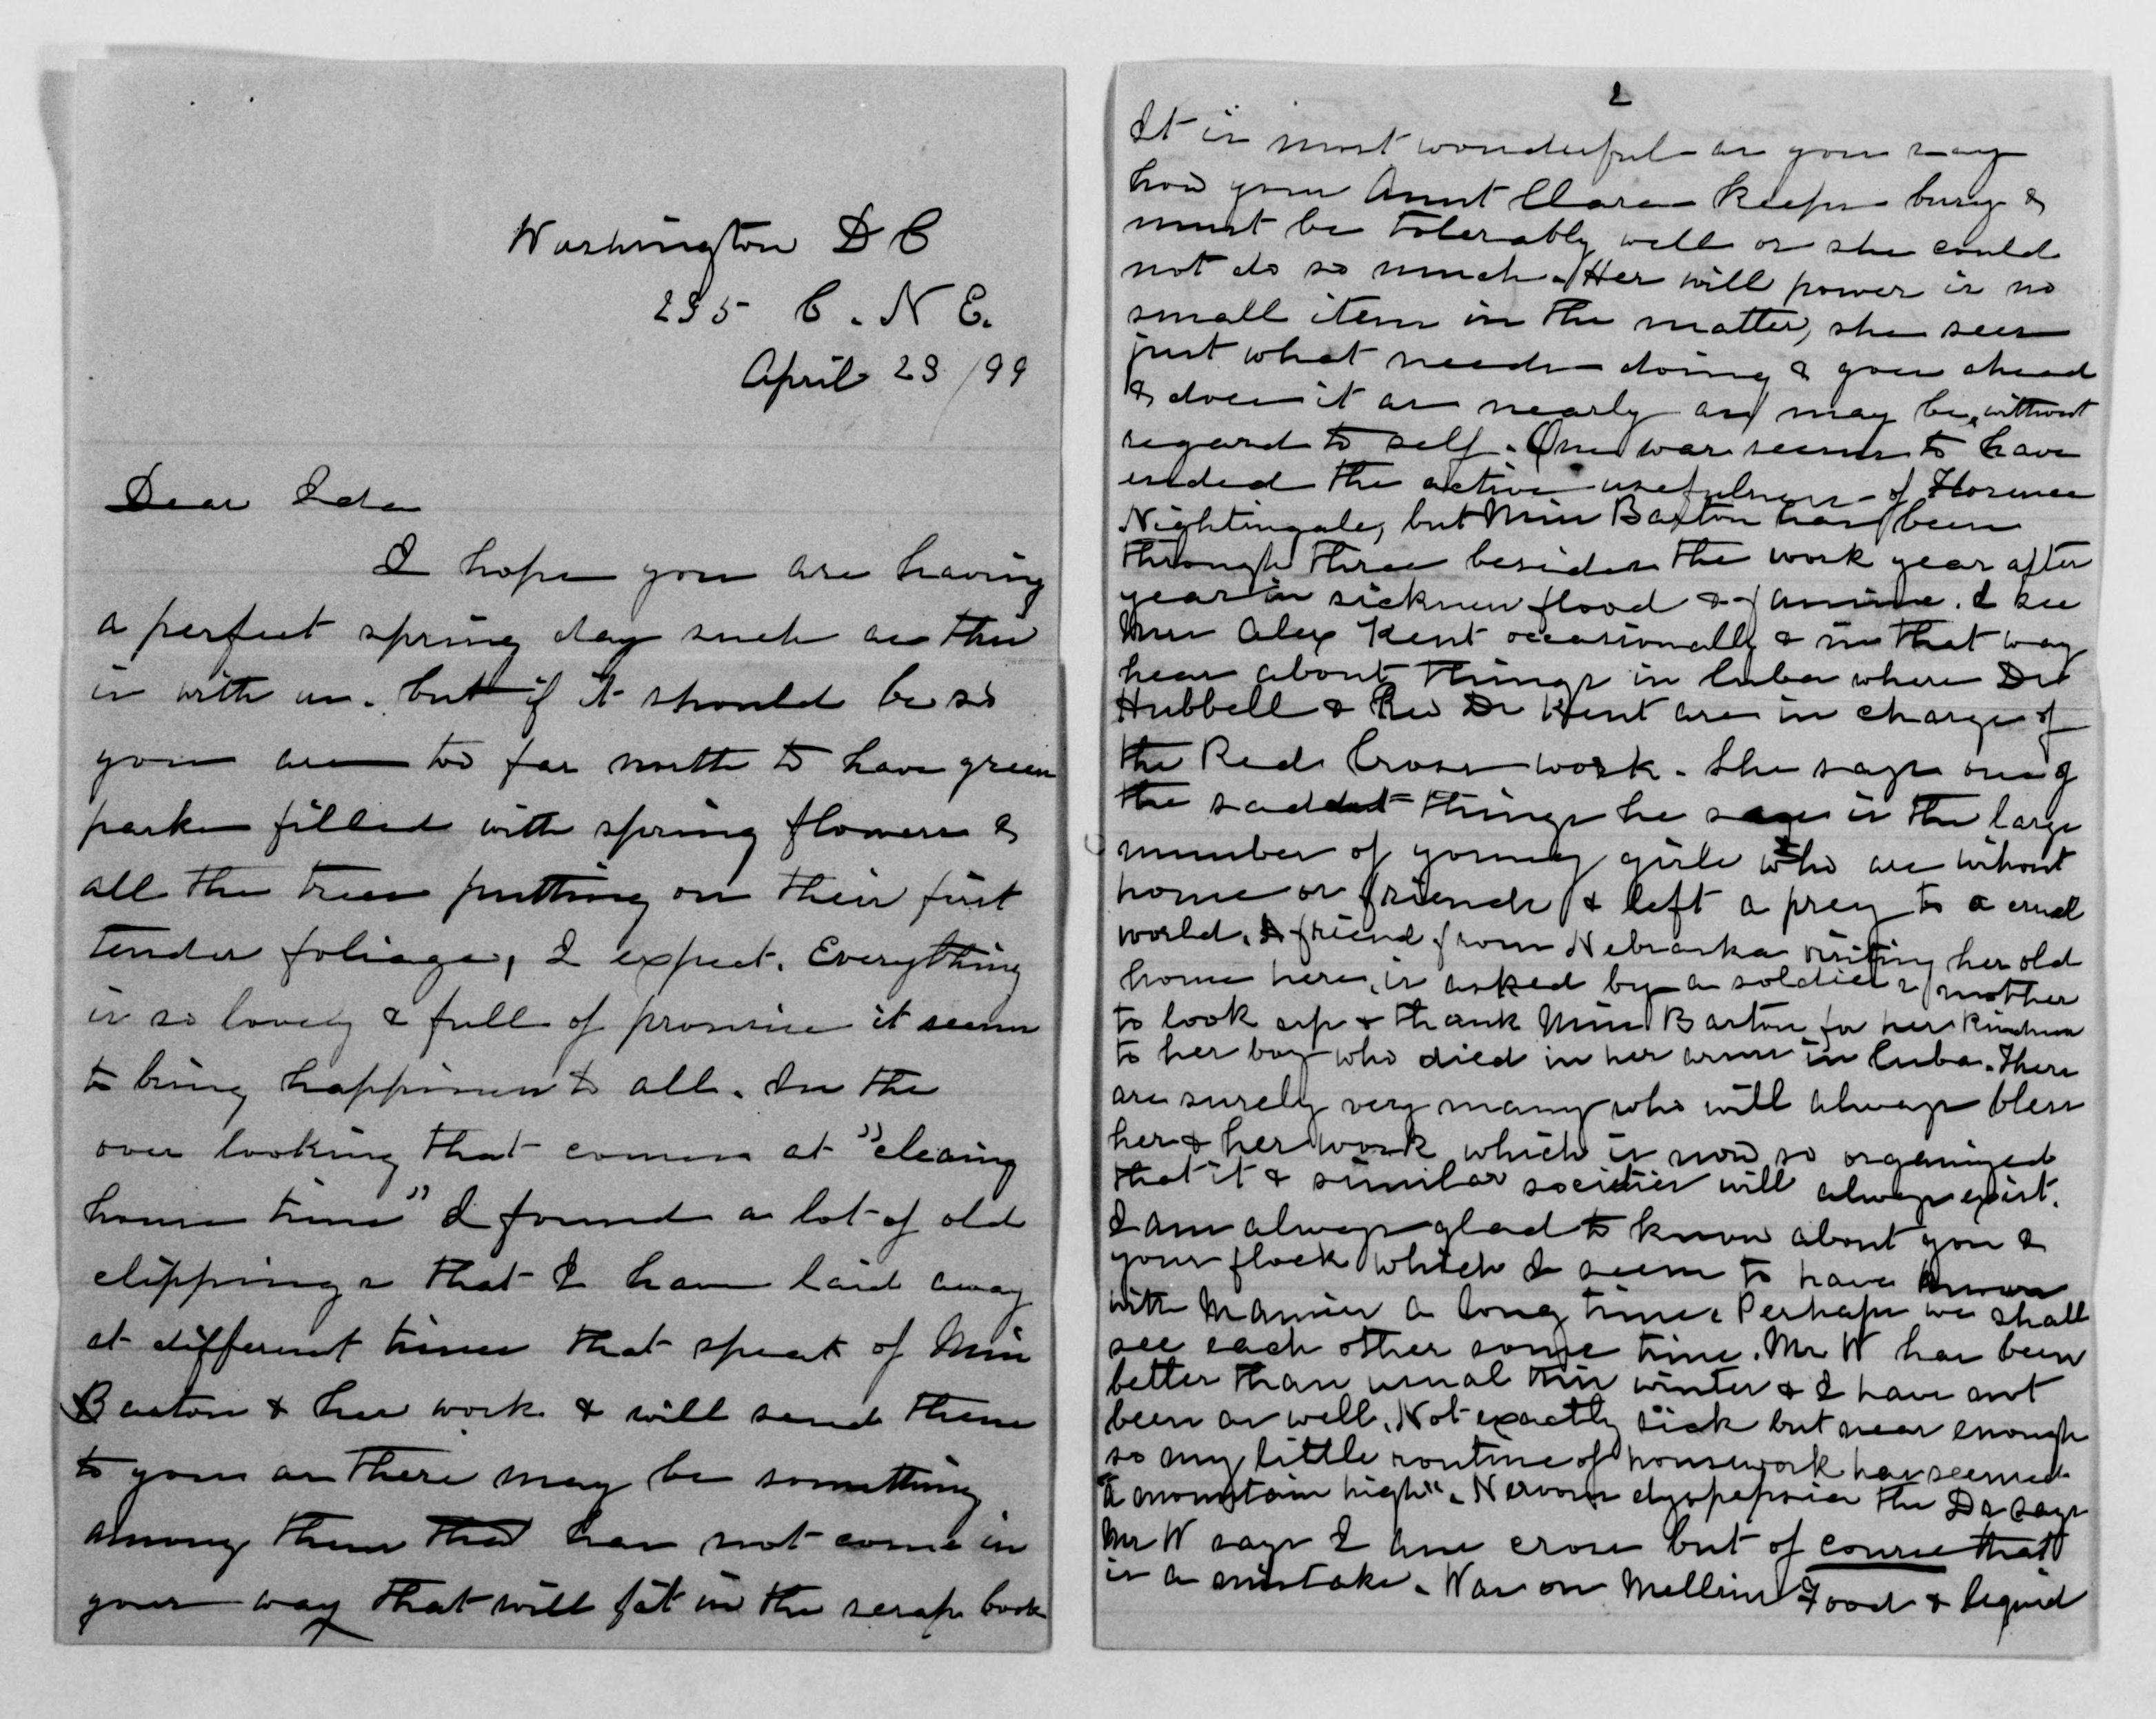 Washington D C
235 C. N E.
April 23/99
Dear Ida
I hope you are having
a perfect spring day such as this
is with us. but if it should be so
you are too far north to have green
parks filled with spring flowers &
all the trees putting on their first
tender foliage, I expect. Everything
is so lovely & full of promise it seems
to bring happiness to all. In the
over looking that comes at "cleaing
house time" I found a lot of old
clippings that I have laid away
at different times that speak of Miss
Barton & her work & will send them
to you as there may be something
among them that has not come in
your way that will fit in the scrap book
2
It is most wonderful as you say
how your Aunt Clara keeps busy &
must be tolerably well or she could
not do so much. Her will power is no
small item in the matter, she sees
just what needs doing & goes ahead
& does it as nearly as may be, without
regard to self. One war seems to have
ended the active usefulness of Florence
Nightingale, but Miss Barton has been
through three besides the work year after
year in sickness flood & famine. I see
Mrs Alex Kent occasionally & in that way
hear about things in Cuba where Dr
Hubbell & Rev Dr Kent are in charge of
the Red Cross work. She says one of
the saddest things he says is the large
number of young girls who are wihout
home or friends & left a prey to a cruel
world. A friend from Nebraska visiting her old
home here, is asked by a soldiers mother
to look up & thank Miss Barton for her kindness
to her boy who died in her arms in Cuba. There
are surely very many who will always bless
her & her work which is now so organized
that it & similar societies will always exist.
I am always glad to know about you &
your flock which I seem to have known
with Mamie a long time. Perhaps we shall
see each other some time. Mr W has been
better than usual this winter & I have not
been as well. Not exactly sick but near enough
so my little routine of housework has seemed
"a mountain high". Nervous dyspepsia the Dr says
Mr W says I am cross but of course that
is a mistake. Was on Mellins Food & liquid